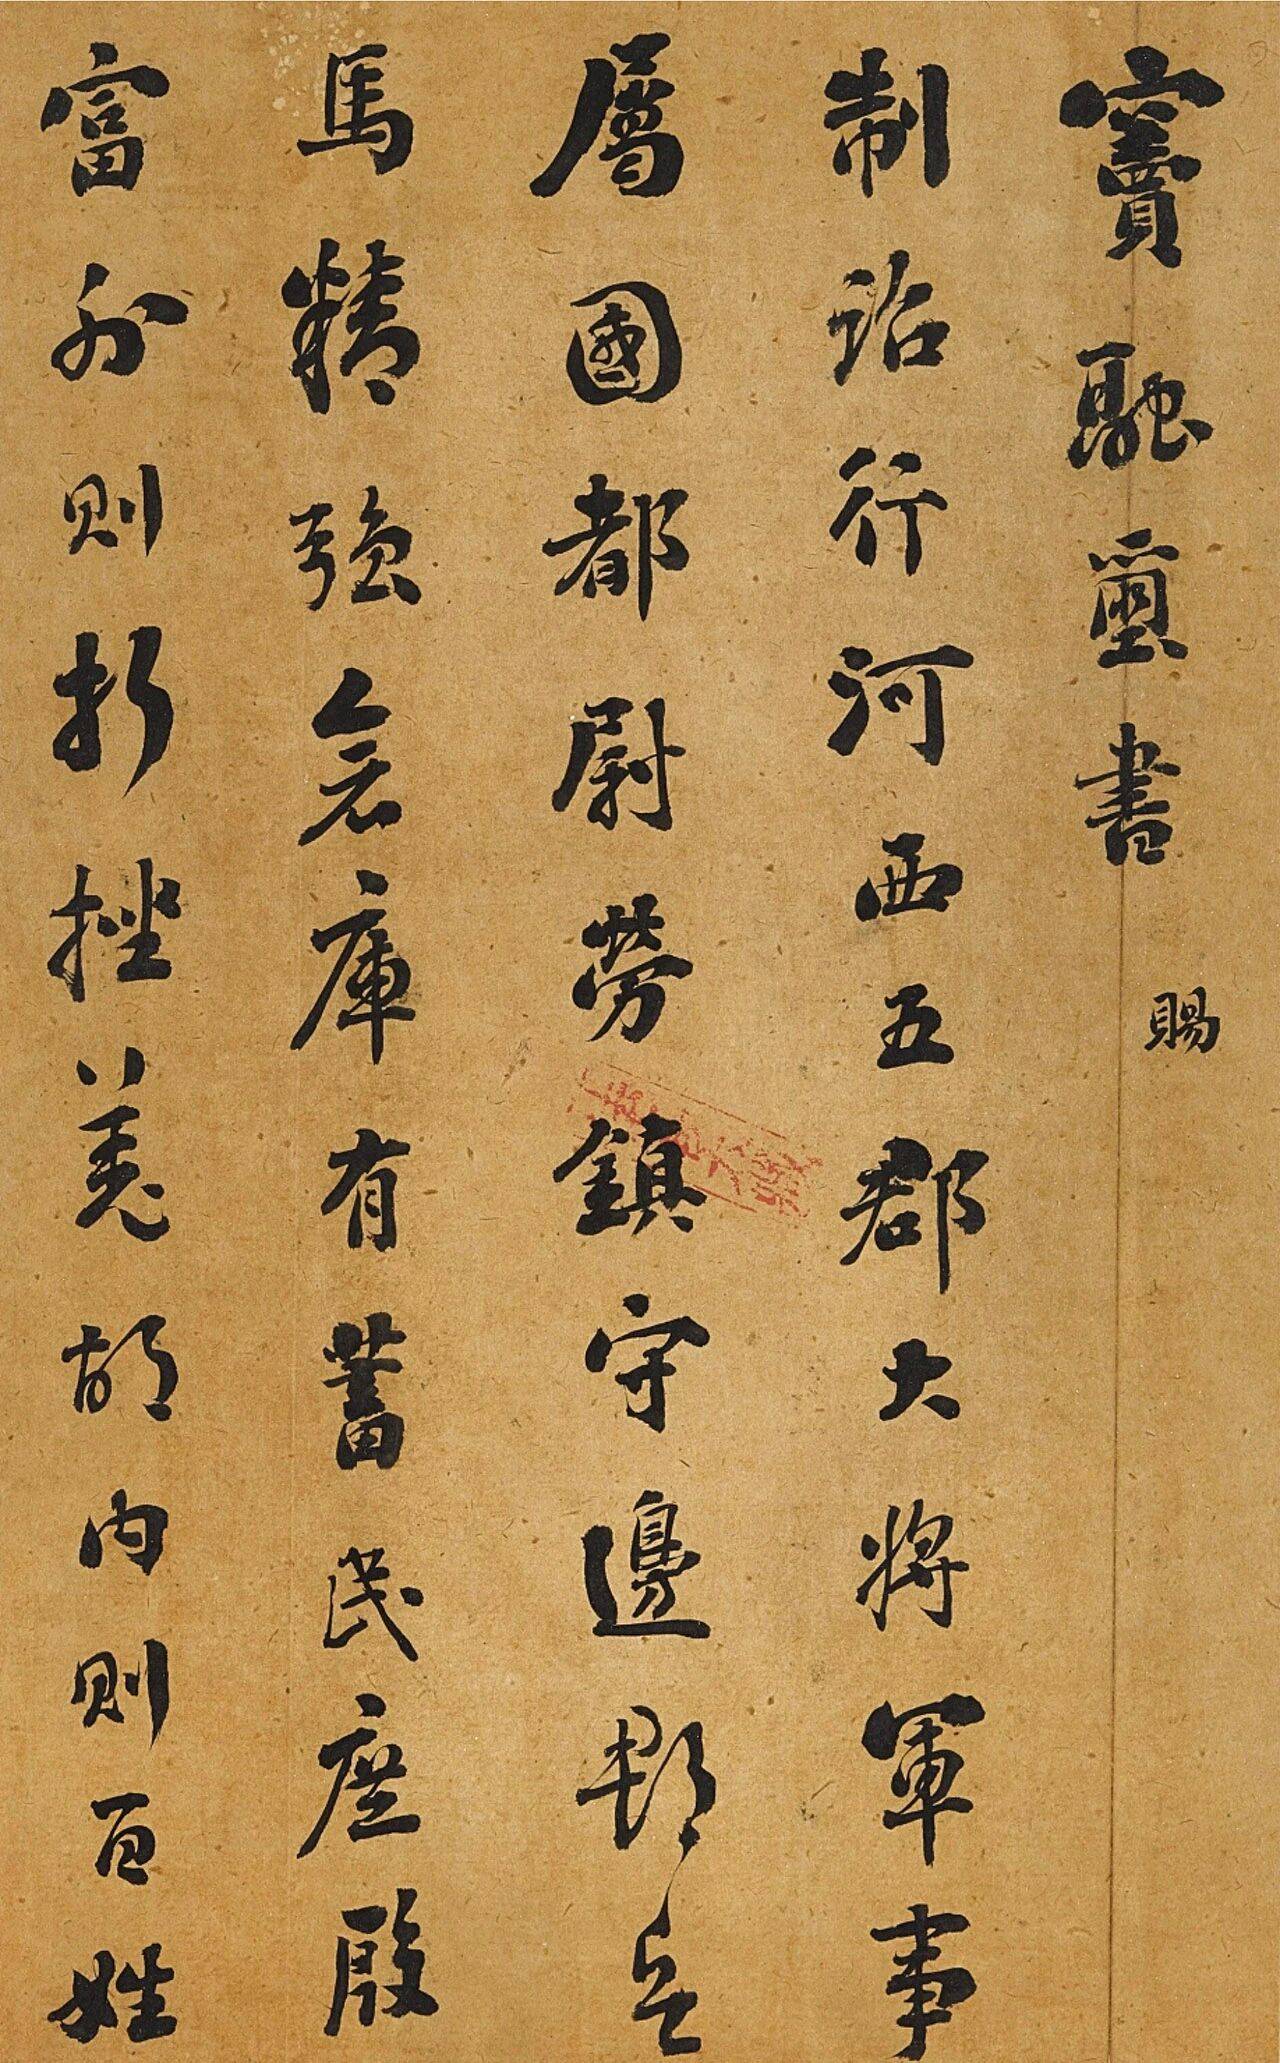 竇融璽書 賜
制詔行河西五郡大將軍事
屬國都尉勞鎮守邊郡兵
馬精強倉庫有蓄民庶殷
富外則折挫羌胡內則百姓